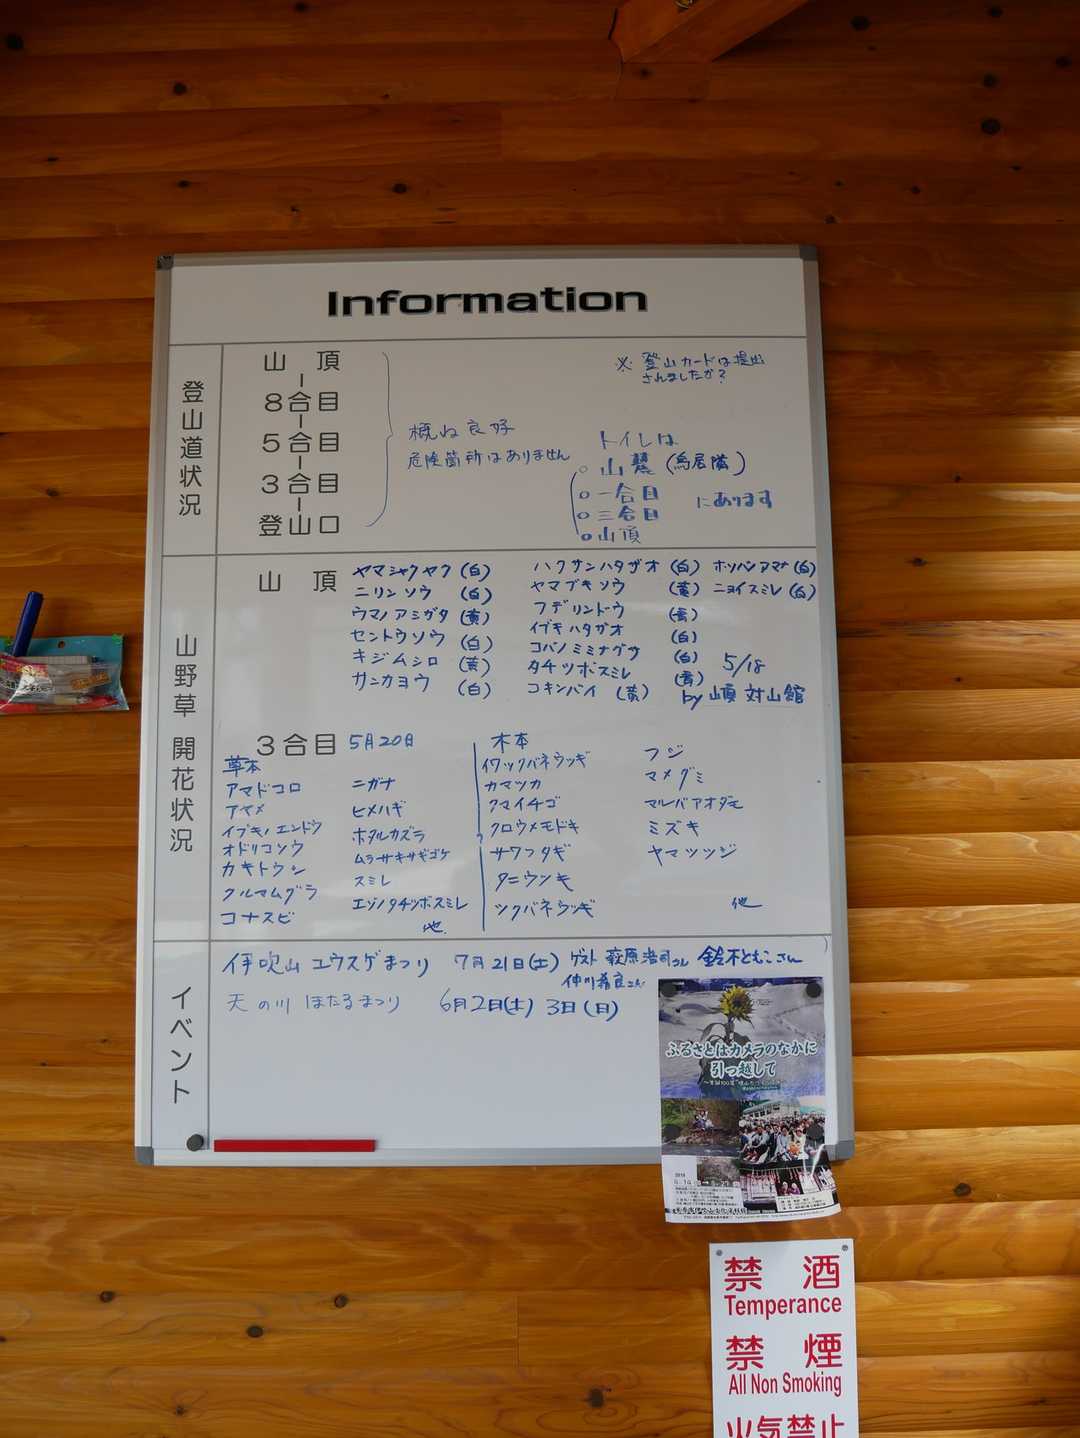 Information
登山道状況
山頂
8合目
5合目
3合目
登山口
概ね良好
危険箇所はありません
※ 登山カードは提出
されましたか?
トイレは
○ 山麓 (鳥居隣)
○ 一合目
○ 三合目
○ 山頂
にあります
山野草 開花状況
山頂
ヤマシャクヤク (白)
ニリンソウ (白)
ウマノアシガタ (黄)
セントウソウ (白)
キジムシロ (黄)
サンカヨウ (白)
ハクサンハタザオ (白)
ヤマブキソウ (黄)
フデリンドウ (青)
イブキハタザオ (白)
コバノミミナグサ (白)
タチツボスミレ (青)
コキンバイ (黄)
ホソバノアマナ (白)
ニョイスミレ (白)
5/18
by 山頂 対山館
3合目 5月20日
草本
アマドコロ
アヤメ
イブキノエンドウ
オドリコソウ
カキドウシ
クルマムグラ
コナスビ
ニガナ
ヒメハギ
ホタルカズラ
ムラサキサギゴケ
スミレ
エゾノタチツボスミレ
他
木本
イワツクバネウツギ
カマツカ
クマイチゴ
クロウメモドキ
サワフタギ
タニウツギ
ツクバネウツギ
フジ
マメグミ
マルバアオダモ
ミズキ
ヤマツツジ
他
イベント
伊吹山 ユウスゲまつり 7月21日(土) ゲスト 萩原浩司さん 鈴木ともこさん
仲川希良さん
天の川 ほたるまつり 6月2日(土) 3日(日)
ふるさとはカメラのなかに
引っ越して
禁酒
Temperance
禁煙
All Non Smoking
火気禁止